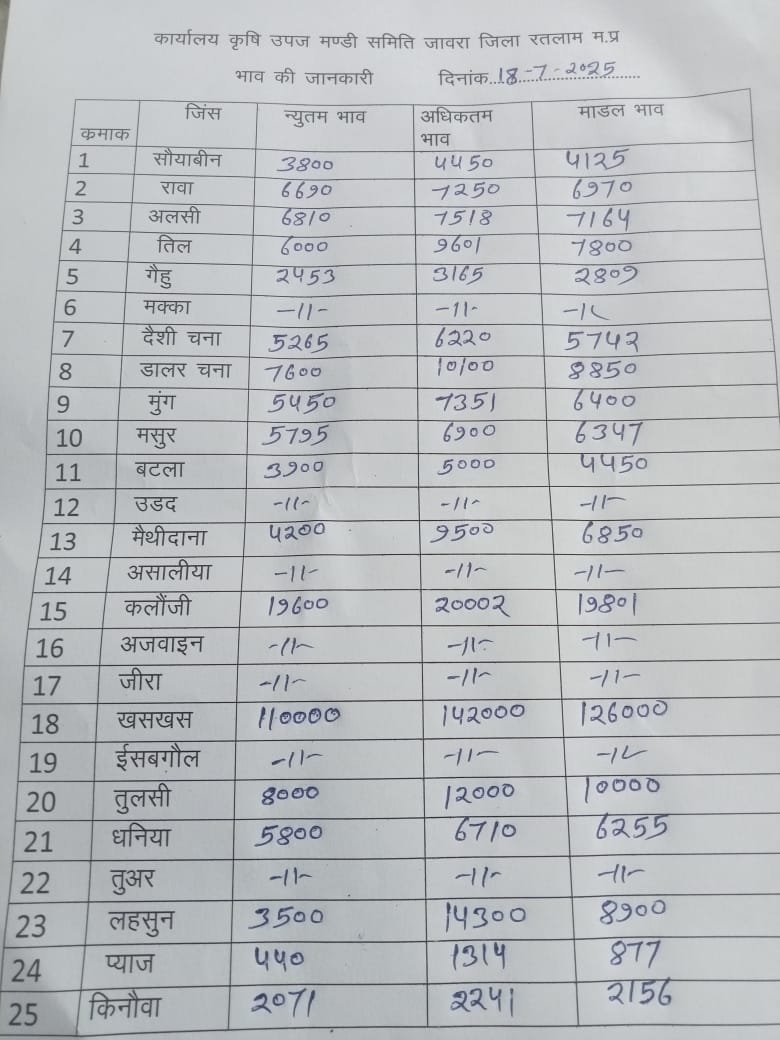 कार्यालय कृषि उपज मण्डी समिति जावरा जिला रतलाम म.प्र
भाव की जानकारी दिनांक..18-7-2025
कमाक जिंस न्युतम भाव अधिकतम भाव माडल भाव
1 सौयाबीन 3800 4450 4125
2 रावा 6690 7250 6970
3 अलसी 6810 7518 7164
4 तिल 6000 9601 7800
5 गैहु 2453 3165 2809
6 मक्का -11- -11- -11
7 दैशी चना 5265 6220 5742
8 डालर चना 7600 10100 8850
9 मुंग 5450 7351 6400
10 मसुर 5795 6900 6347
11 बटला 3900 5000 4450
12 उडद -11- -11- -11-
13 मैथीदाना 4200 9500 6850
14 असालीया -11- -11- -11-
15 कलौंजी 19600 20002 19801
16 अजवाइन -11- -11- -11-
17 जीरा -11- -11- -11-
18 खसखस 110000 142000 126000
19 ईसबगौल -11- -11- -11-
20 तुलसी 8000 12000 10000
21 धनिया 5800 6710 6255
22 तुअर -11- -11- -11-
23 लहसुन 3500 14300 8900
24 प्याज 440 1314 877
25 किनौवा 2071 2241 2156